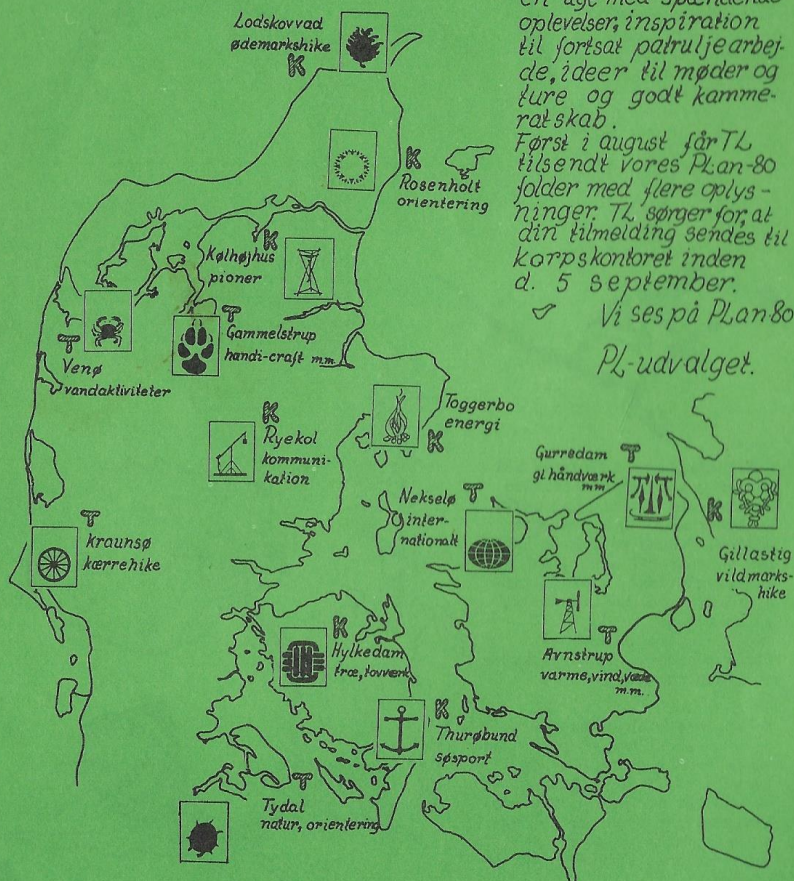 en uge med spændende
oplevelser, inspiration
til fortsat patruljearbej-
de, ideer til møder og
ture og godt kamme-
ratskab.
Først i august får TL
tilsendt vores PLan-80
folder med flere oplys-
ninger. TL sørger for, at
din tilmelding sendes til
korpskontoret inden
d. 5 september.
Vi ses på PLan80
PL-udvalget.
Lodskovvad
ødemarkshike
K
K
Rosenholt
orientering
K
Kølhøjhus
pioner
T
Gammelstrup
handi-craft mm.
T
Venø
vandaktiviteter
K
Ryekol
kommuni-
kation
Toggerbo
energi
K
Gurredam T
gl håndværk
mm
Nekselø T
inter-
nationalt
K
Gillastig
vildmarks-
hike
T
kraunsø
kærrehike
T
Avnstrup
varme, vind, væde
m.m.
K
Hylkedam
træ, tovværk
K
Thurøbund
søsport
T
Tydal
natur, orientering